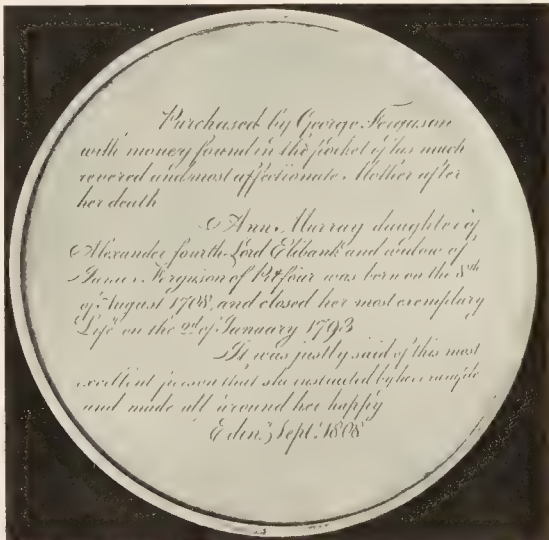 Purchased by George Ferguson
with money found in the pocket of his much
revered and most affectionate Mother after
her death
Ann Murray daughter of
Alexander fourth Lord Elibank and widow of
James Ferguson of Pitfour was born on the 8th
of August 1708, and closed her most exemplary
Life on the 2d of January 1793
It was justly said of this most
excellent person that she instructed by her example
and made all around her happy
Edinr. Sept. 1808